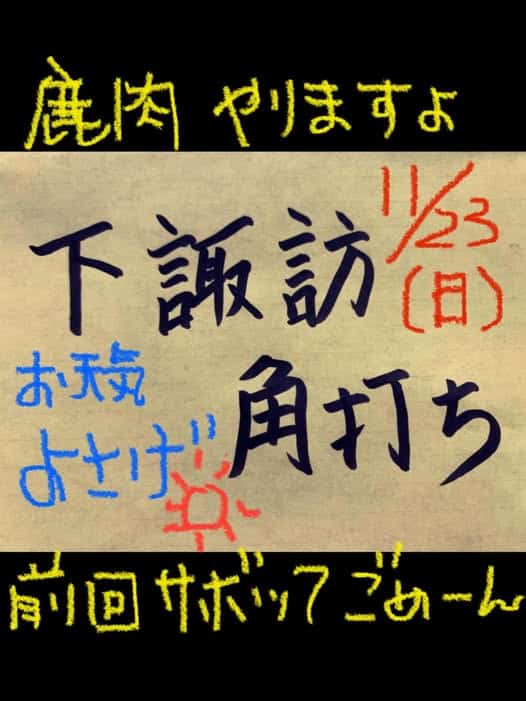 鹿肉 やりますよ
11/23
(日)
下諏訪
角打ち
お天気
よさげ
前回 サボッて ごめーん